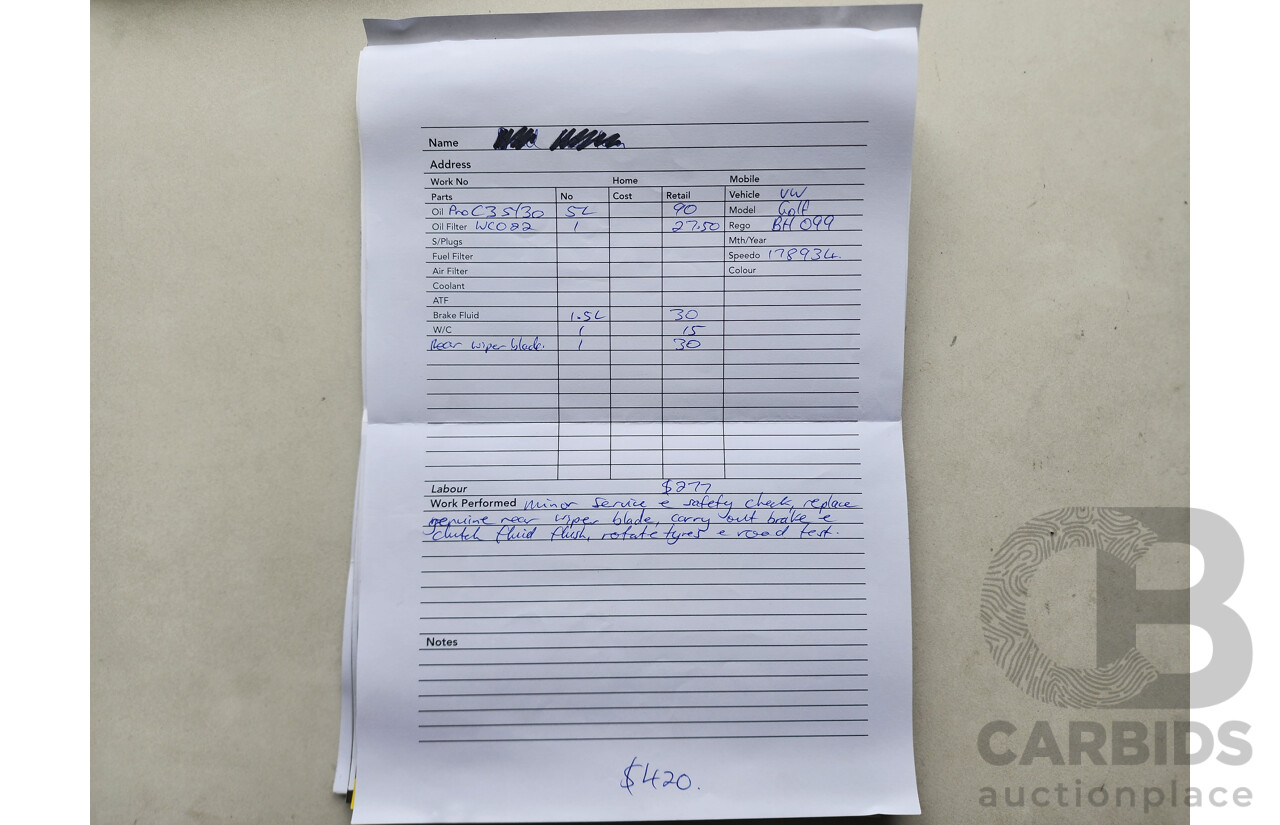 Name
Address
Work No Home Mobile
Parts No Cost Retail Vehicle VW
Oil Pro C3 5/30 5L 90 Model Golf
Oil Filter WCO82 1 27.50 Rego BH 099
S/Plugs Mth/Year
Fuel Filter Speedo 178934.
Air Filter Colour
Coolant
ATF
Brake Fluid 1.5L 30
W/C 1 15
Rear wiper blade. 1 30
Labour $277
Work Performed minor service & safety check, replace
genuine rear wiper blade, carry out brake &
clutch fluid flush, rotate tyres & road test.
Notes
$420.
CB
CARBIDS
auctionplace